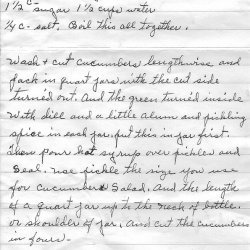 1 1/2 c sugar 1 1/2 cups water
1/4 c - salt. Boil this all together.
Wash & cut cucumbers lengthwise and
pack in quart jars with the cut side
turned out. And the green turned inside
With dill and a little alum and pickling
spice in each jar. put this in jar first.
Then pour hot syrup over pickles and
Seal. use pickle the size you use
for cucumber Salad. And the length
of a quart jar up to the neck of bottle.
or shoulder of jar, And cut the cucumbers
in fours -